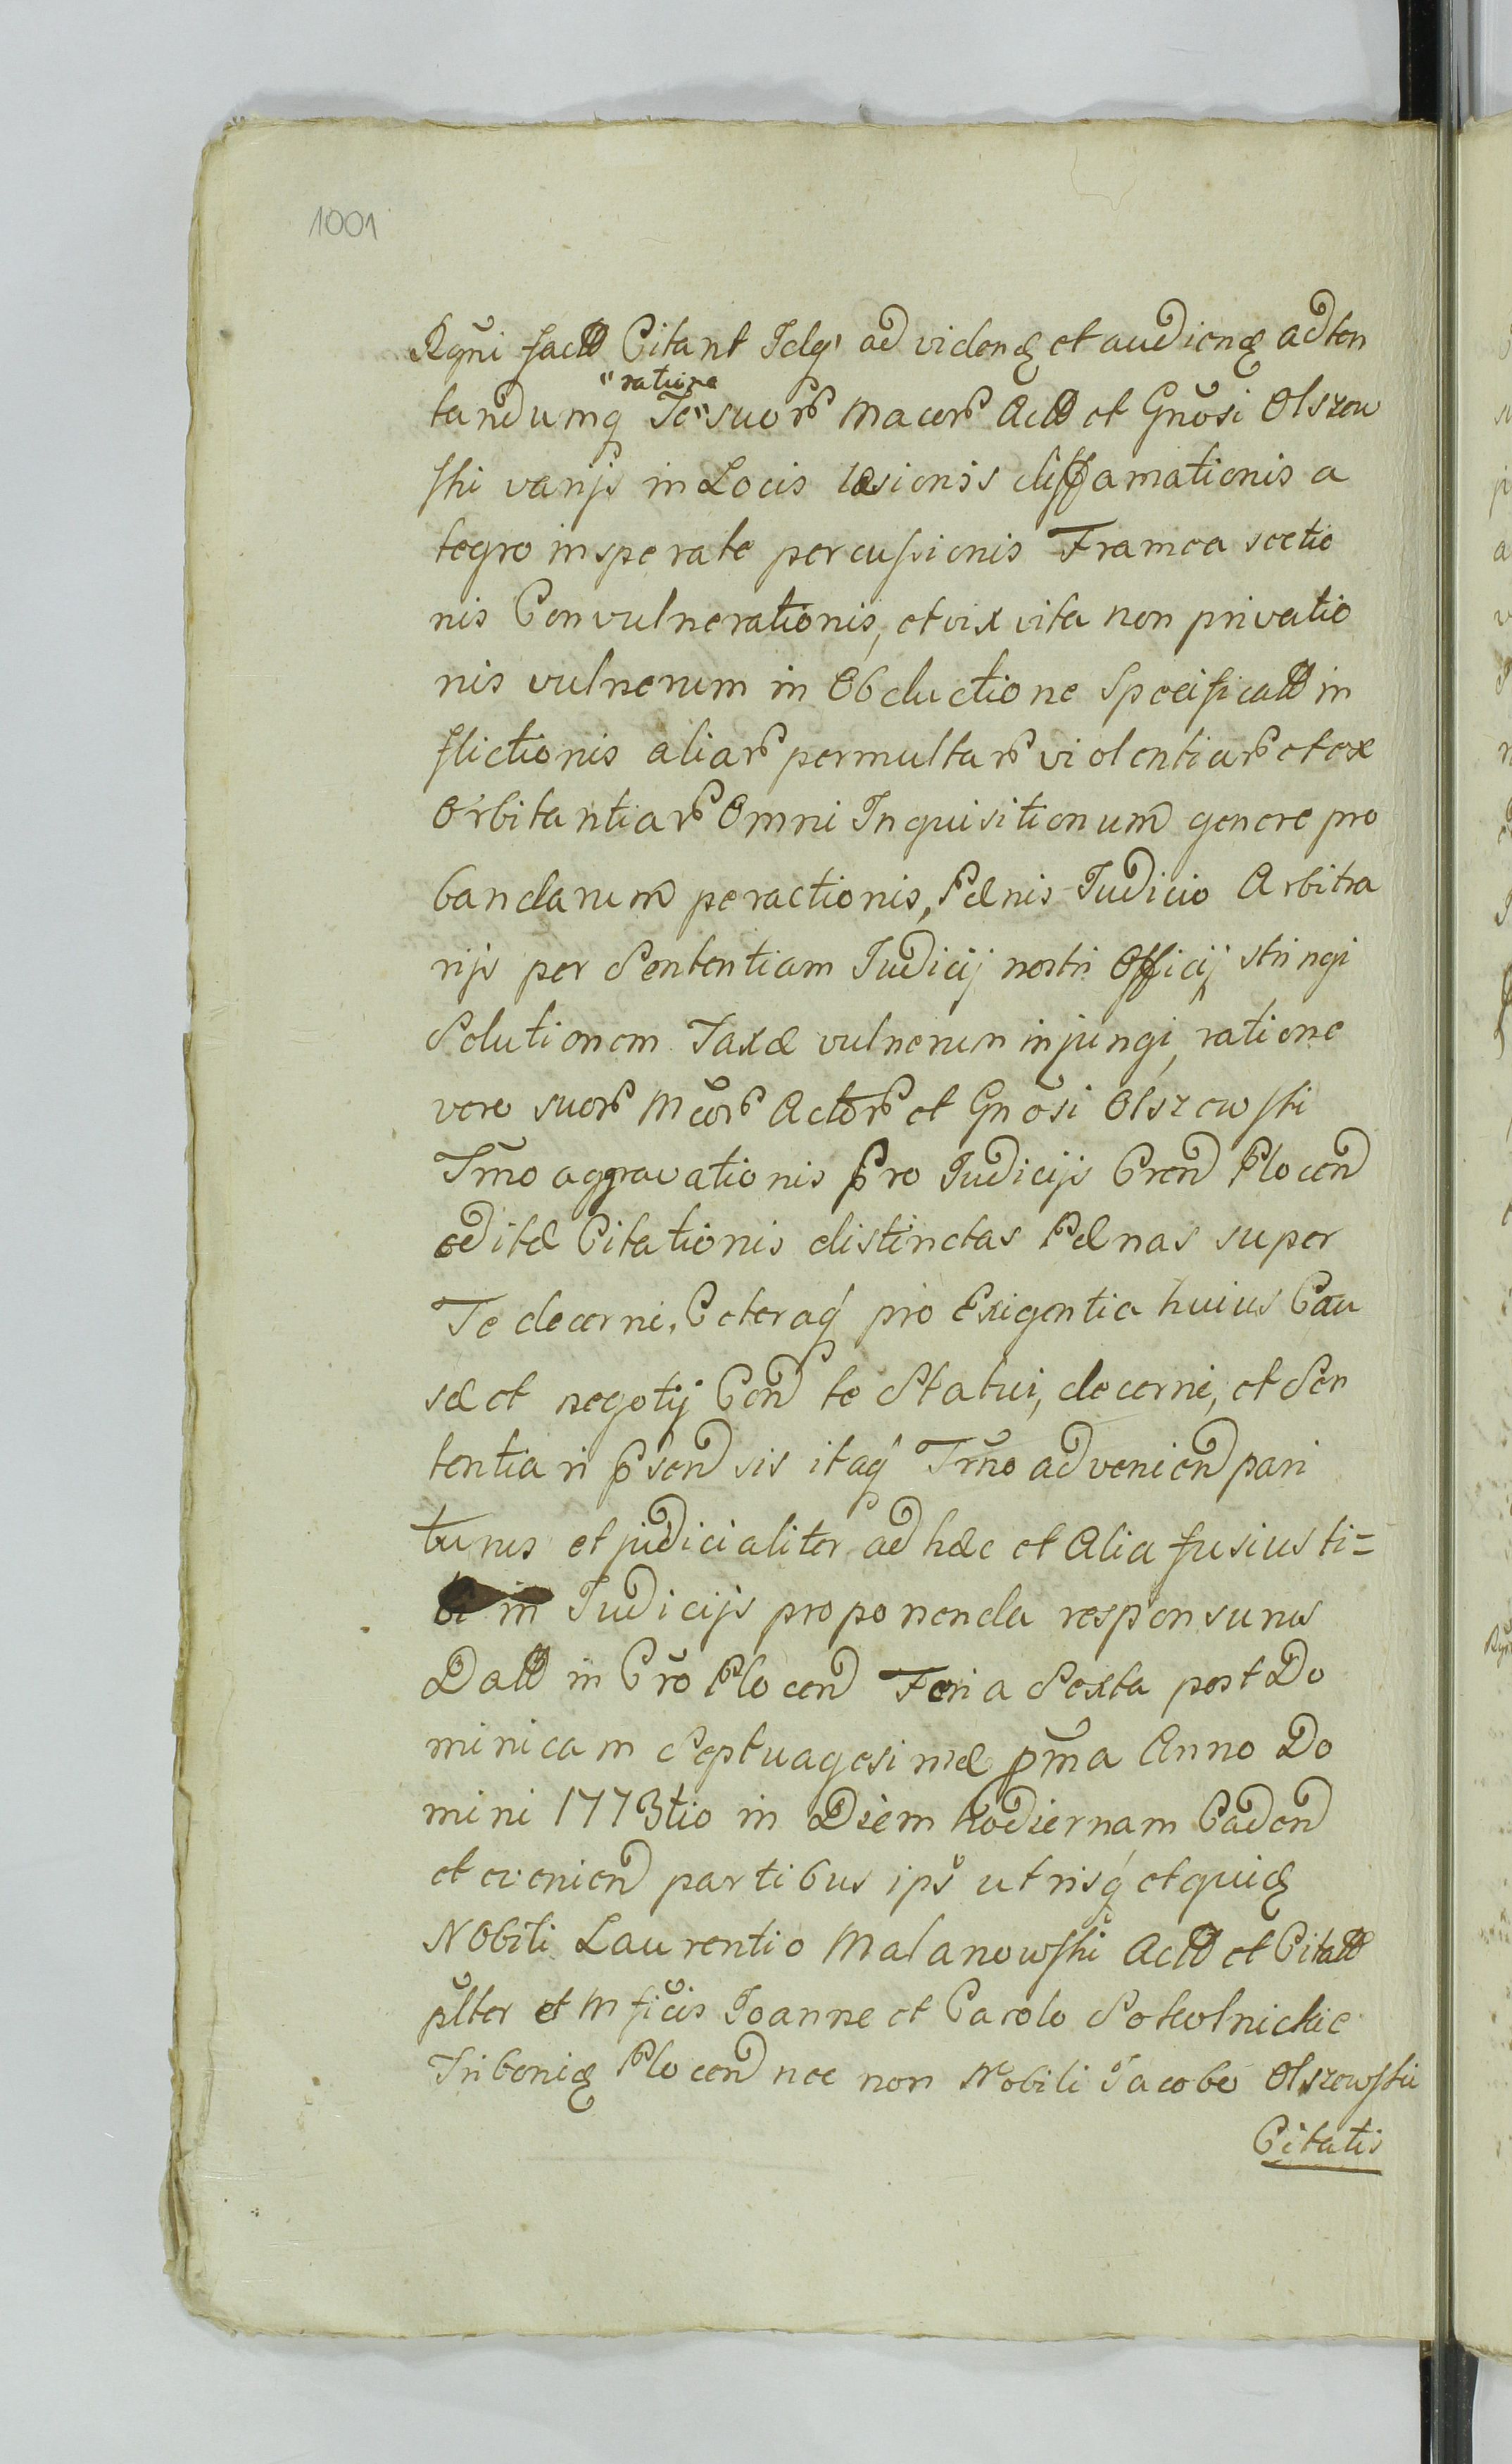 1001
Rgni fact Citant Idq ad videnᵭ et audienᵭ adten
"ratione
tandumq Te" suorᵭ macerᵭ Act et Gnosi Olszew
ski varijs in Locis læsionis diffamationis a
tegro insperate percussionis Framea sectio
nis Convulnerationis, et vix vita non privatio
nis vulnerum in Obductione Specificatt in
flictionis aliarᵭ permultarᵭ violentiarᵭ et ex
Orbitantiarᵭ Omni Inquisitionum genere pro
bandarum peractionis, Pænis Judicio Arbitra
rijs per Sententiam Judicij nostri Officij stringi
Solutionem Taxæ vulnerum injungi, ratione
vero suorᵭ Mcorᵭ Actorᵭ et Gnosi Olszewski
Tmo aggravationis pro Judicijs Cren Plocen
editæ Citationis distinctas Pænas super
Te decerni, Ceteraq pro Exigentia huius Cau
sæ et negotij Con te Statui, decerni, et Sen
tentiari psen sis itaq Trno advenien pari
turus et judicialiter ad hæc et Alia fusius ti=
bi in Judicijs proponenda responsurus
Datt in Cro Plocen Feria Sexta post Do
minicam Septuagesimæ pma Anno Do
mini 1773tio in Diem hodiernam Caden
et evenien partibus ips utrisq et quidᵭ
Nobili Laurentio Malanowski Act et Citatt
plter et Mficis Joanne et Carolo Sokolnickie
Tribonidᵭ Plocen nec non Nobili Jacobo Olszewski
Citatis